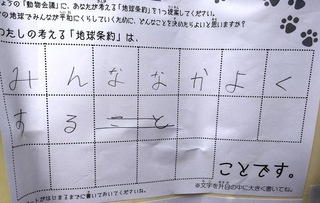 ょうの「動物会議」に、あなたが考える「地球条約」を1つ提案してください。
の地球でみんなが平和にくらしていくために、どんなことを決めたらよいと思いますか?
わたしの考える「地球条約」は、
みんななかよく
すること
ことです。
※文字を升目の中に大きく書いてね。
ートがはじまるまでに書いておいてくださいね。